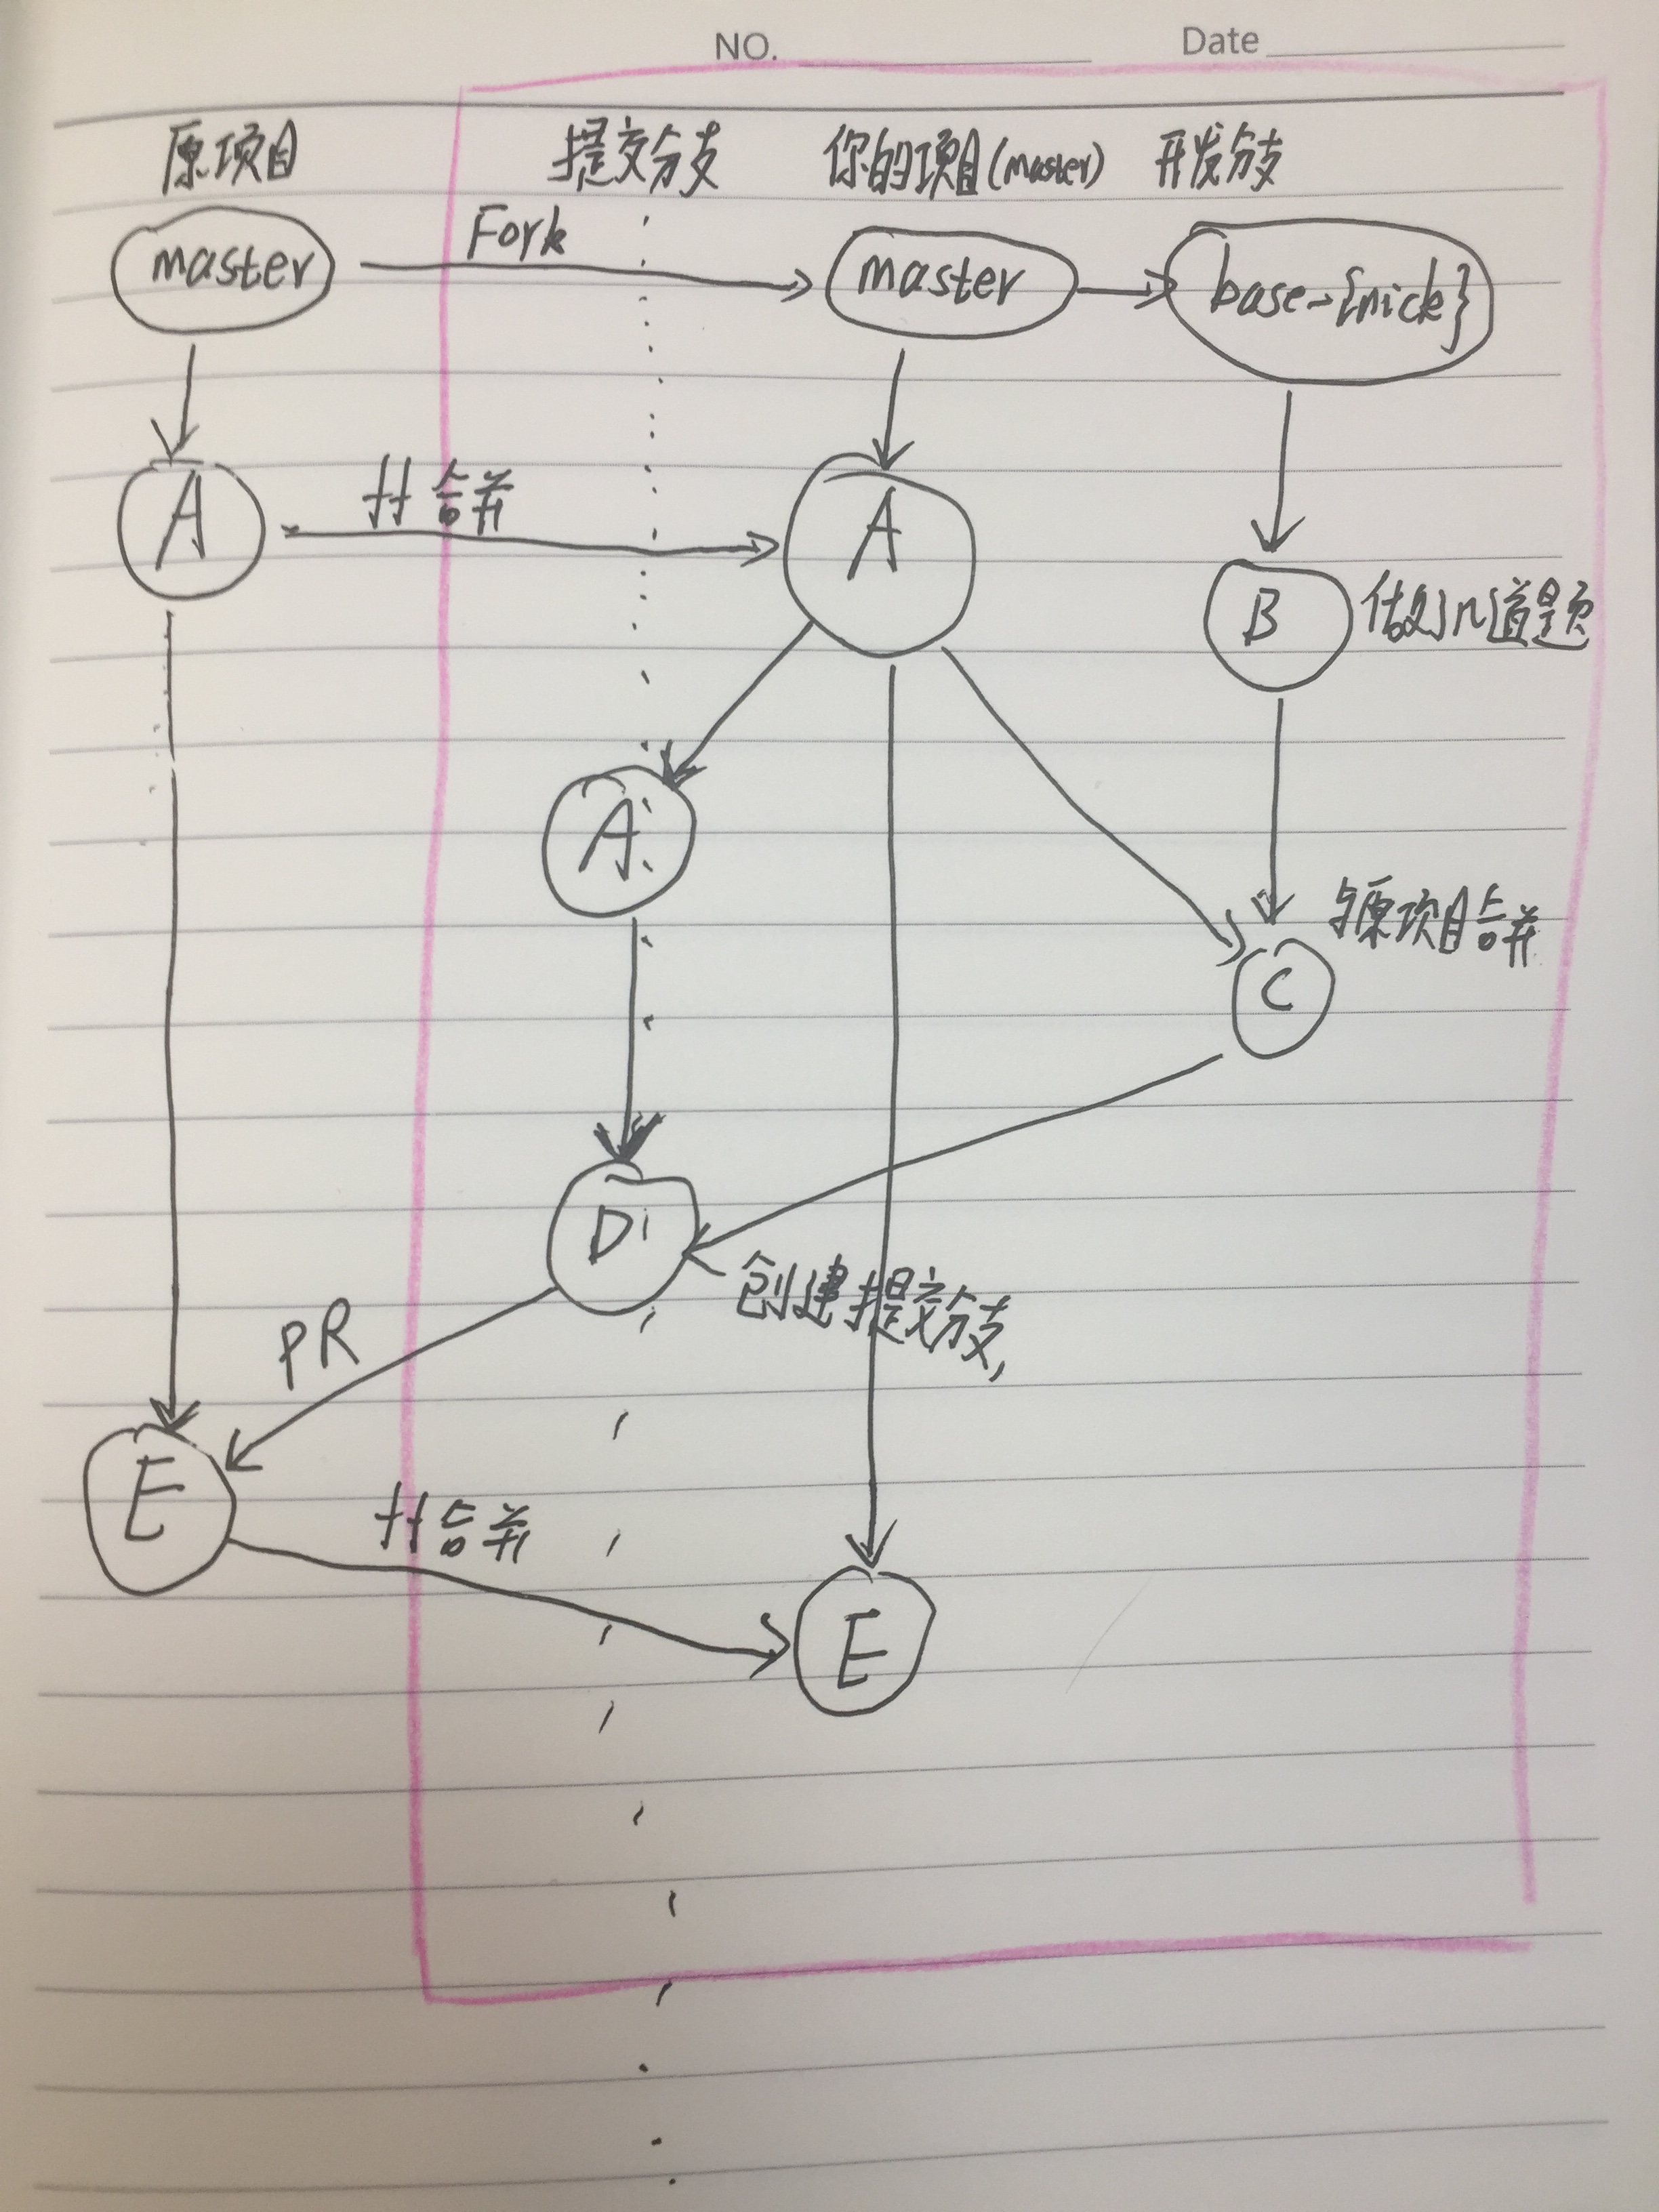 NO. Date
原项目 提交分支 你的项目(master) 开发分支
Fork
master master base-{nick}
A 合并 A
B 做几道题
A
与原项目合并
C
D
创建提交分支,
PR
E 合并
E